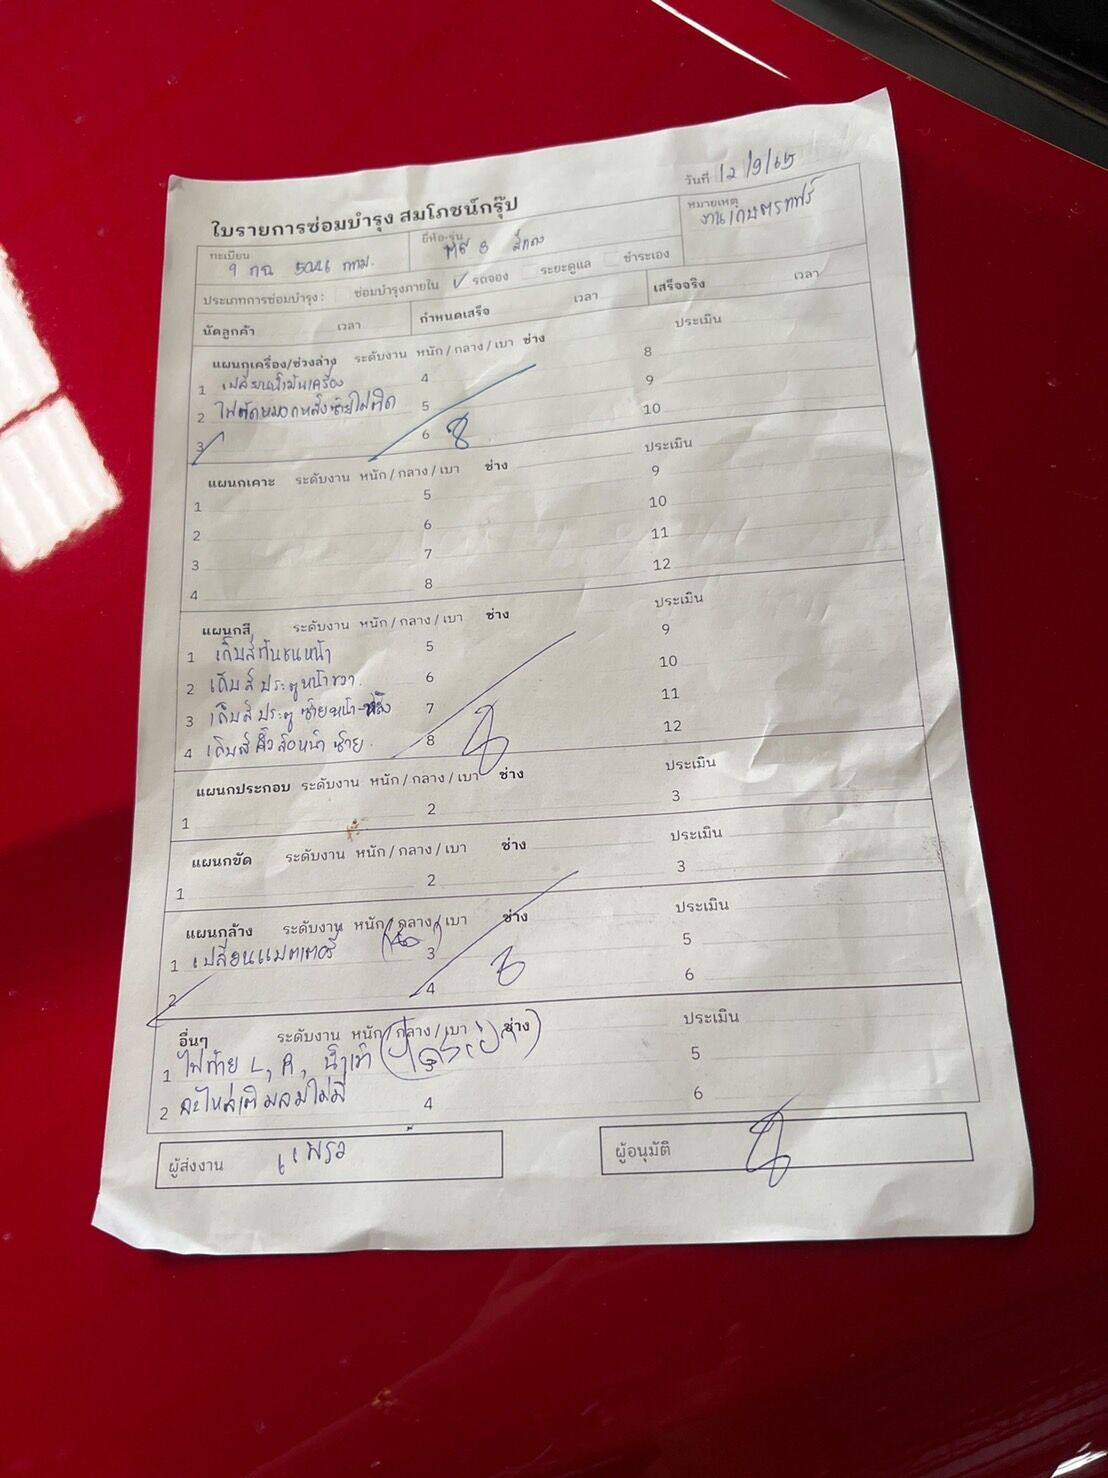 วันที่ 12/9/65
ใบรายการซ่อมบำรุง สมโภชน์กรุ๊ป
ทะเบียน ยี่ห้อ-รุ่น หมายเหตุ
9 กฉ 5026 กทม. สีแดง งานเกษตรแฟร์
ประเภทการซ่อมบำรุง : ซ่อมบำรุงภายใน ✓ รถจอง ระยะดูแล ชำระเอง
นัดลูกค้า เวลา กำหนดเสร็จ เวลา เสร็จจริง เวลา
แผนกเครื่อง/ช่วงล่าง ระดับงาน หนัก / กลาง / เบา ช่าง ประเมิน
1 เปลี่ยนน้ำมันเครื่อง 4 8
2 ไฟตัดหมอกหลังซ้ายไม่ติด 5 9
3 6 10
แผนกเคาะ ระดับงาน หนัก / กลาง / เบา ช่าง ประเมิน
1 5 9
2 6 10
3 7 11
4 8 12
แผนกสี ระดับงาน หนัก / กลาง / เบา ช่าง ประเมิน
1 เก็บสีกันชนหน้า 5 9
2 เก็บสีประตูหน้าขวา 6 10
3 เก็บสีประตูซ้ายหน้า-หลัง 7 11
4 เก็บสีคิ้วล้อหน้าซ้าย 8 12
แผนกประกอบ ระดับงาน หนัก / กลาง / เบา ช่าง ประเมิน
1 2 3
แผนกขัด ระดับงาน หนัก / กลาง / เบา ช่าง ประเมิน
1 2 3
แผนกล้าง ระดับงาน หนัก / กลาง / เบา ช่าง ประเมิน
1 เปลี่ยนแบตเตอรี่ 3 5
2 4 6
อื่นๆ ระดับงาน หนัก / กลาง / เบา ช่าง ประเมิน
1 ไฟท้าย L, R, 5
2 4 6
ผู้ส่งงาน แพรว ผู้อนุมัติ